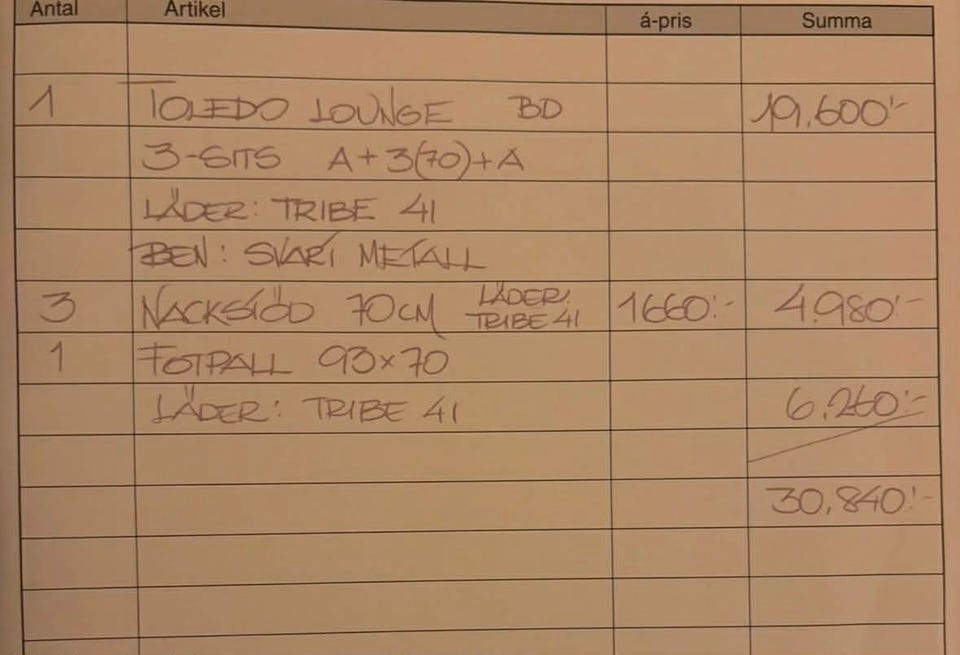 Antal Artikel á-pris Summa
1 TOLEDO LOUNGE BD 19.600:-
3-SITS A+3(70)+A
LÄDER: TRIBE 41
BEN: SVART METALL
3 NACKSTÖD 70CM LÄDER: TRIBE 41 1660:- 4.980:-
1 FOTPALL 93x70
LÄDER: TRIBE 41 6.260:-
30,840:-